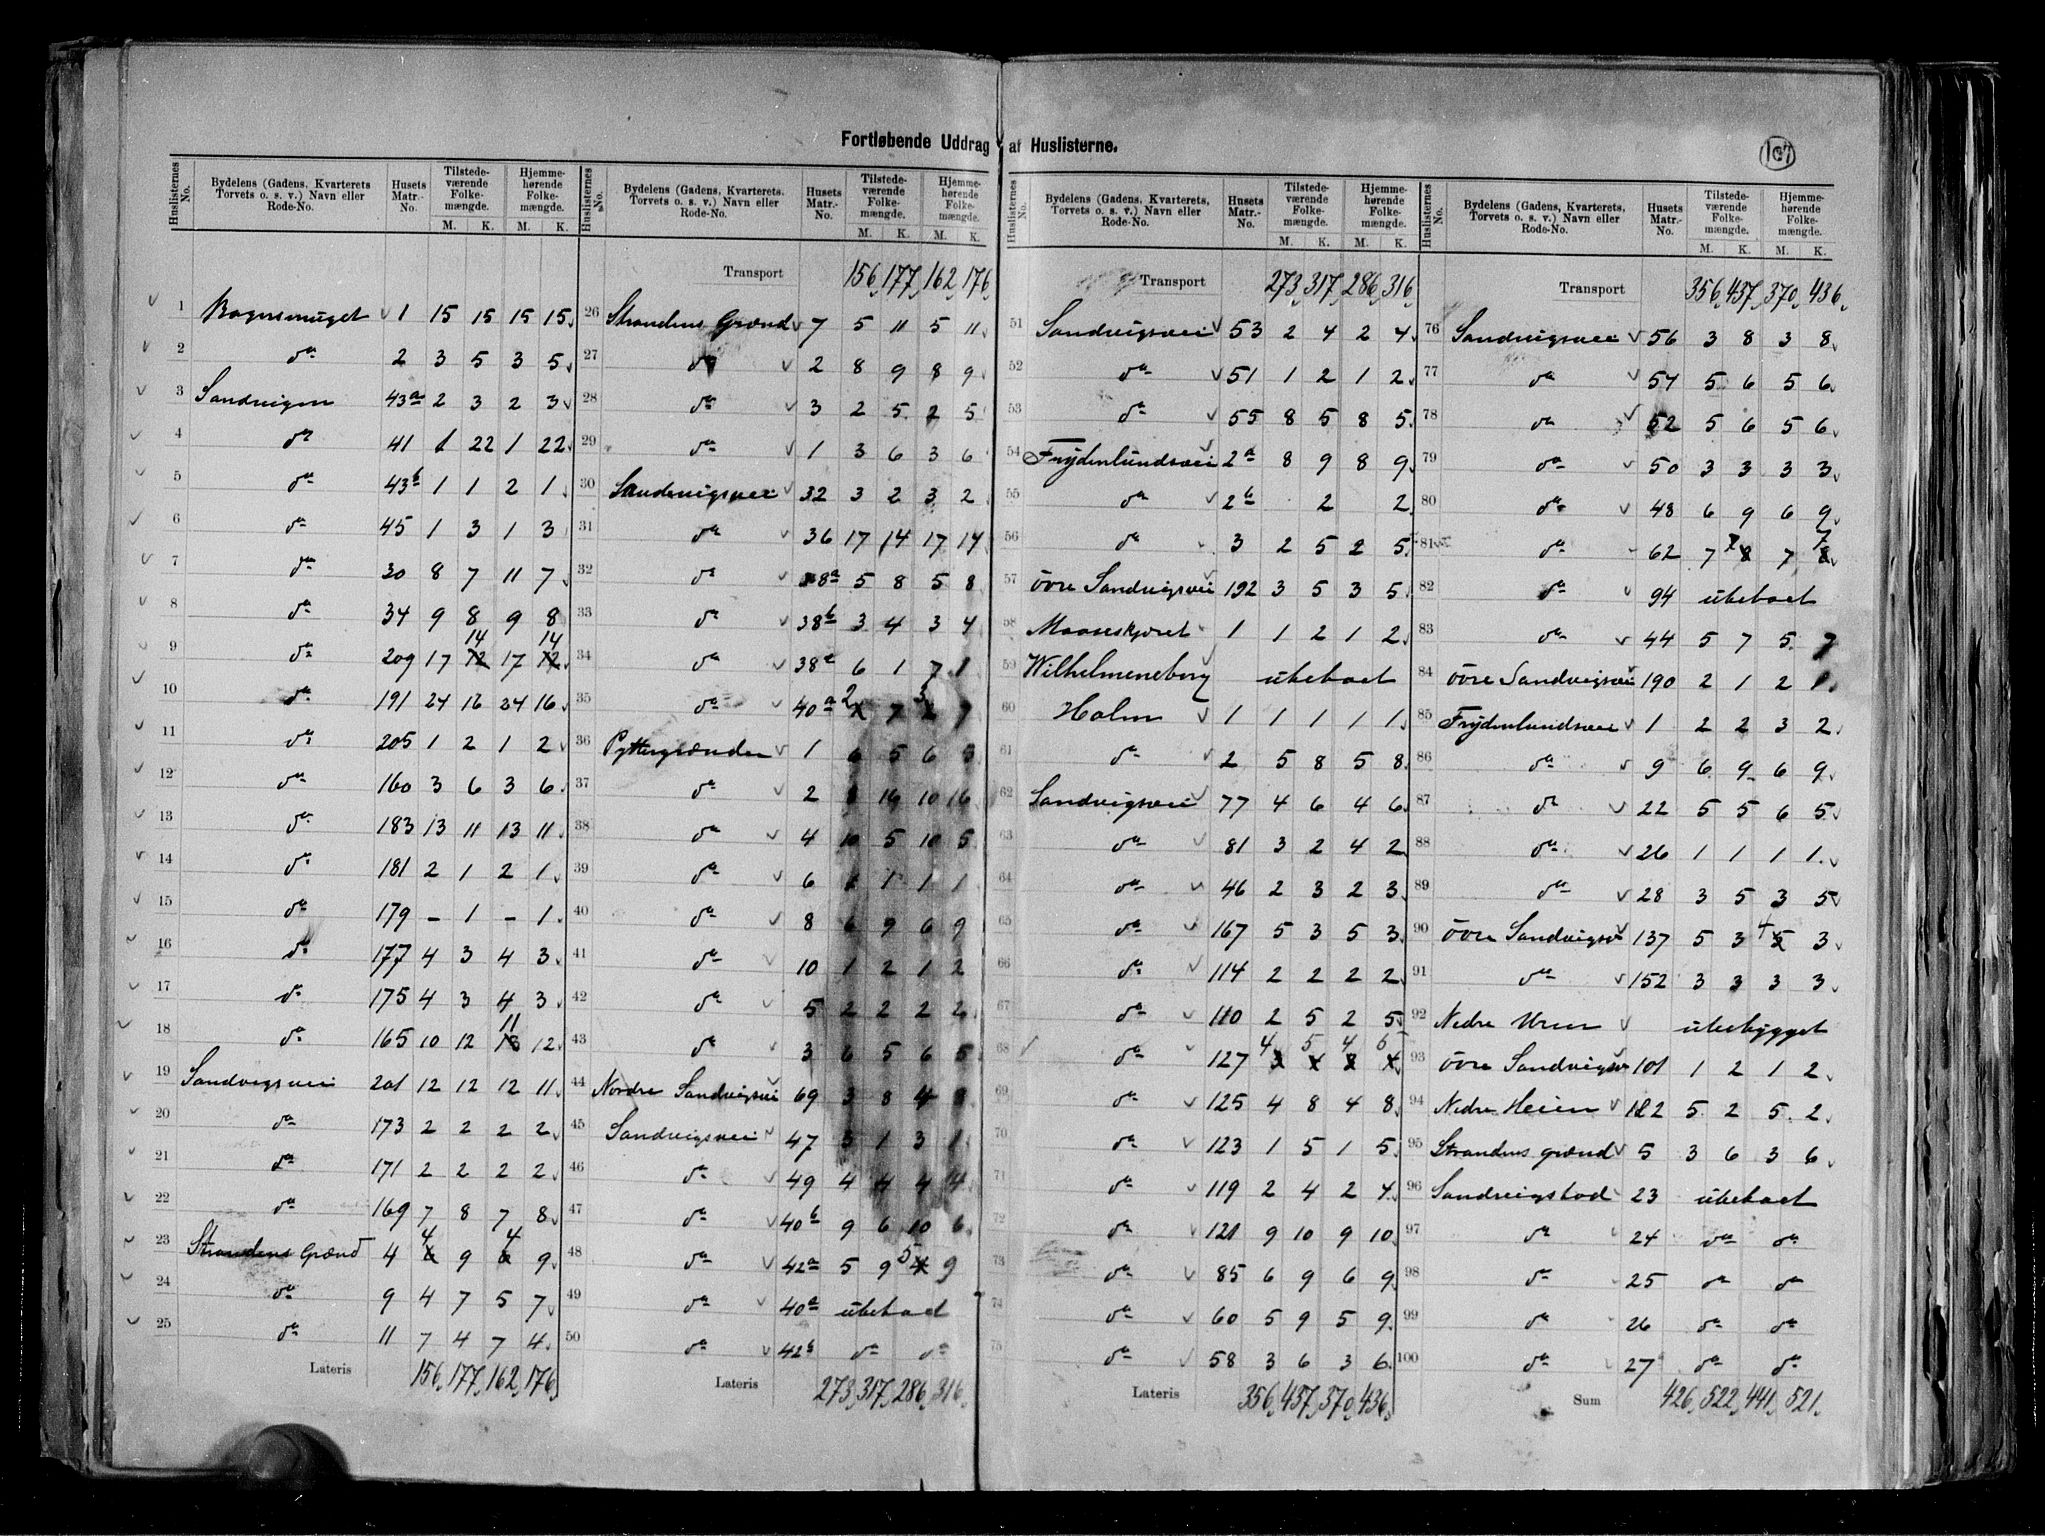 Fortløbende Uddrag af Huslisterne.
107
Huslisternes No. Bydelens (Gadens, Kvarterets Torvets o. s. v.) Navn eller Rode-No. Husets Matr.-No. Tilstede-værende Folke-mængde. M. K. Hjemme-hørende Folke-mængde. M. K.
1 Bagersmuget 1 15 15 15 15
2 do 2 3 5 3 5
3 Sandvigen 43a 2 3 2 3
4 do 41 1 22 1 22
5 do 43b 1 1 2 1
6 do 45 1 3 1 3
7 do 30 8 7 11 7
8 do 34 9 8 9 8
9 do 209 17 14 17 14
10 do 191 24 16 24 16
11 do 205 1 2 1 2
12 do 160 3 6 3 6
13 do 183 13 11 13 11
14 do 181 2 1 2 1
15 do 179 - 1 - 1
16 do 177 4 3 4 3
17 do 175 4 3 4 3
18 do 165 10 12 11 12
19 Sandvigsvei 201 12 12 12 11
20 do 173 2 2 2 2
21 do 171 2 2 2 2
22 do 169 7 8 7 8
23 Strandens Grænd 4 4 9 4 9
24 do 9 4 7 5 7
25 do 11 7 4 7 4
Lateris 156, 177, 162, 176,
Huslisternes No. Bydelens (Gadens, Kvarterets, Torvets o. s. v.) Navn eller Rode-No. Husets Matr.-No. Tilstede-værende Folke-mængde. M. K. Hjemme-hørende Folke-mængde. M. K.
Transport 156, 177, 162, 176,
26 Strandens Grænd 7 5 11 5 11
27 do 2 8 9 8 9
28 do 3 2 5 2 5
29 do 1 3 6 3 6
30 Sandvigsvei 32 3 2 3 2
31 do 36 17 14 17 14
32 do 38a 5 8 5 8
33 do 38b 3 4 3 4
34 do 38c 6 1 7 1
35 do 40a 2 7 3 7
36 Pyttergrænden 1 6 5 6 5
37 do 2 16 10 16
38 do 4 10 5 10 5
39 do 6 1 1 1 1
40 do 8 6 9 6 9
41 do 10 1 2 1 2
42 do 5 2 2 2 2
43 do 3 6 5 6 5
44 Nordre Sandvigsvei 69 3 8 4 8
45 Sandvigsvei 47 3 1 3 1
46 do 49 4 4 4 4
47 do 40b 9 6 10 6
48 do 42a 5 9 5 9
49 do 40a ubeboet
50 do 42b do do
Lateris 273, 317, 286, 316,
Huslisternes No. Bydelens (Gadens, Kvarterets, Torvets o. s. v.) Navn eller Rode-No. Husets Matr.-No. Tilstede-værende Folke-mængde. M. K. Hjemme-hørende Folke-mængde. M. K.
Transport 273, 317, 286, 316,
51 Sandvigsvei 53 2 4 2 4
52 do 51 1 2 1 2
53 do 55 8 5 8 5
54 Frydenlundsvei 2a 8 9 8 9
55 do 2b 2 2
56 do 3 2 5 2 5
57 övre Sandvigsvei 192 3 5 3 5
58 Maaseskjæret 1 1 2 1 2
59 Wilhelmeneborg ubeboet
60 Holm 1 1 1 1 1
61 do 2 5 8 5 8
62 Sandvigsvei 77 4 6 4 6
63 do 81 3 2 4 2
64 do 46 2 3 2 3
65 do 167 5 3 5 3
66 do 114 2 2 2 2
67 do 110 2 5 2 5
68 do 127 4 5 4 5
69 do 125 4 8 4 8
70 do 123 1 5 1 5
71 do 119 2 4 2 4
72 do 121 9 10 9 10
73 do 85 6 9 6 9
74 do 60 5 9 5 9
75 do 58 3 6 3 6
Lateris 356, 437, 370, 436,
Huslisternes No. Bydelens (Gadens, Kvarterets, Torvets o. s. v.) Navn eller Rode-No. Husets Matr.-No. Tilstede-værende Folke-mængde. M. K. Hjemme-hørende Folke-mængde. M. K.
Transport 356, 437, 370, 436,
76 Sandvigsvei 56 3 8 3 8
77 do 54 5 6 5 6
78 do 52 5 6 5 6
79 do 50 3 3 3 3
80 do 48 6 9 6 9
81 do 62 7 7 7 7
82 do 94 ubeboet
83 do 44 5 7 5 7
84 övre Sandvigsvei 190 2 1 2 1
85 Frydenlundsvei 1 2 2 3 2
86 do 9 6 9 6 9
87 do 22 5 5 6 5
88 do 26 1 1 1 1
89 do 28 3 5 3 5
90 övre Sandvigsv 137 5 3 4 3
91 do 152 3 3 3 3
92 Nedre Uren ubebygget
93 övre Sandvigsv 101 1 2 1 2
94 Nedre Heien 182 5 2 5 2
95 Strandens grænd 5 3 6 3 6
96 Sandvigsbod 23 ubeboet
97 do 24 do do
98 do 25 do do
99 do 26 do do
100 do 27 do do
Sum 426, 522, 441, 521,